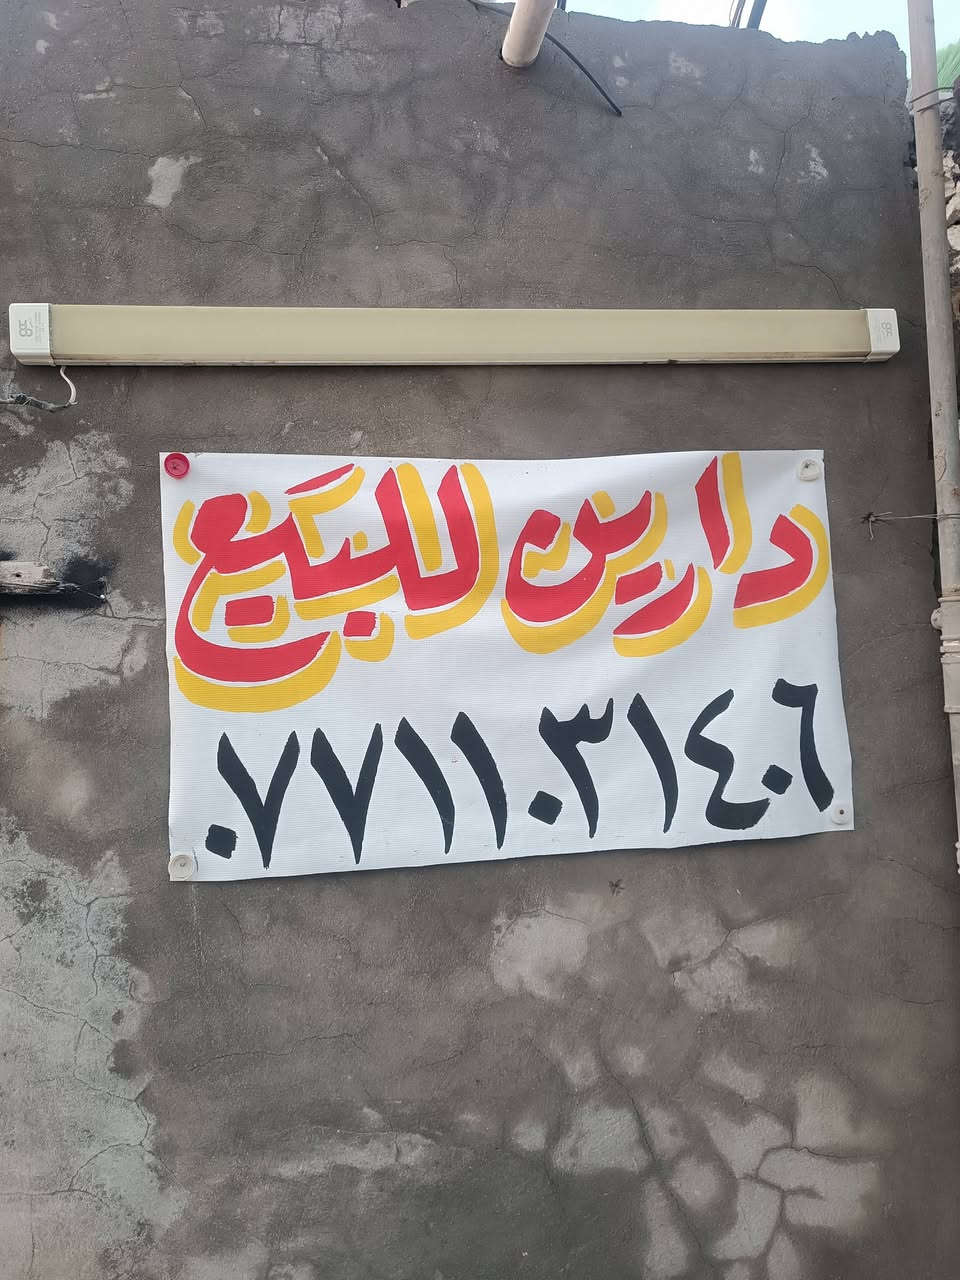 دارين للبيع
٠٧٧١١٠٣١٤٠٦